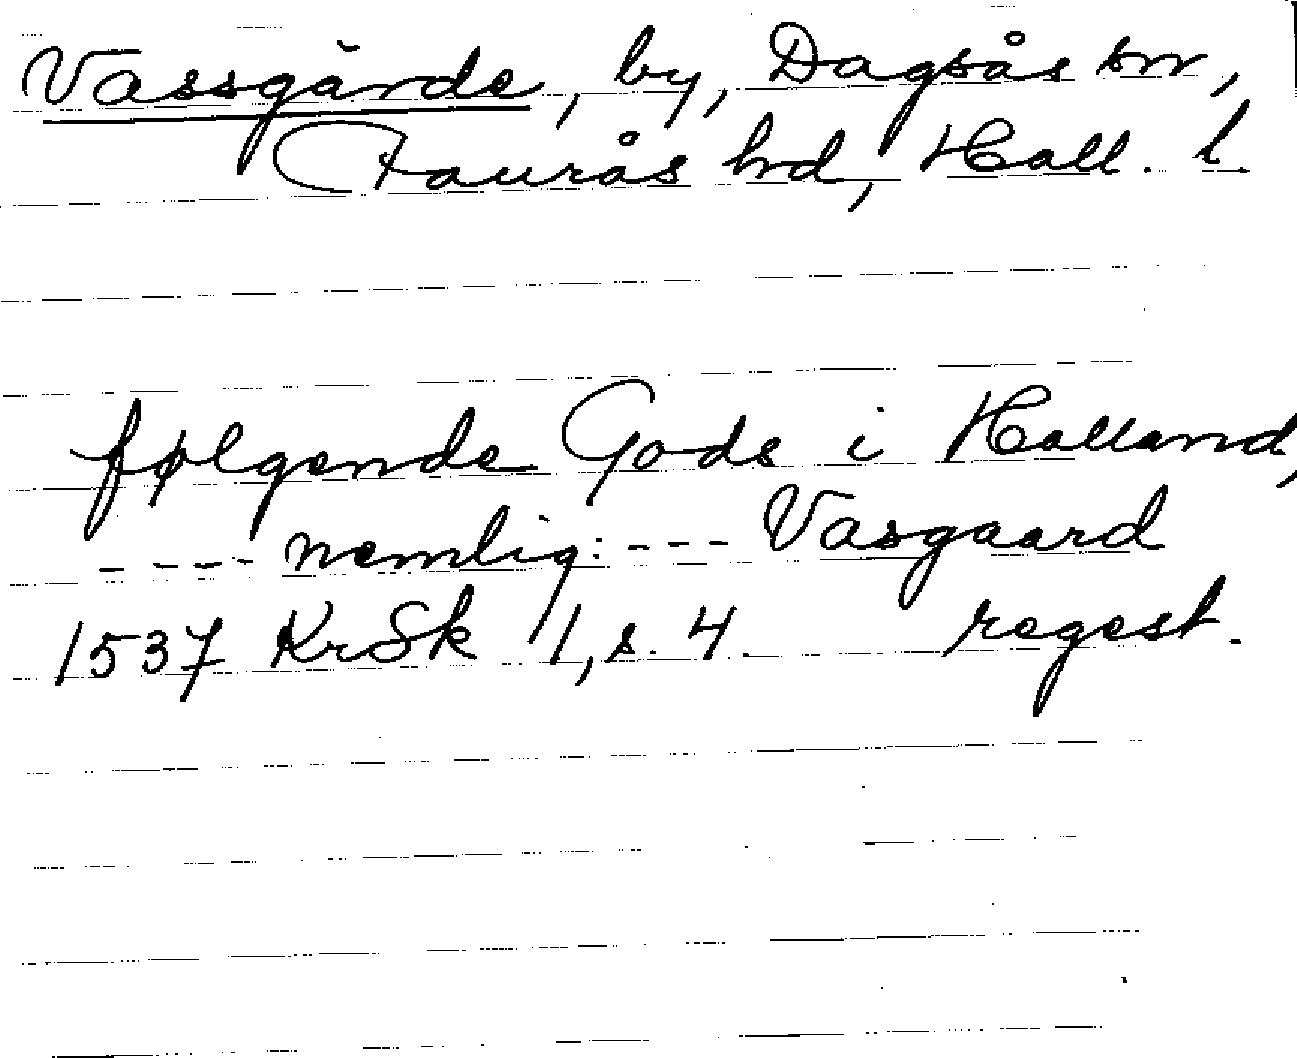 Vassgårde, by, Dagsås sn,
Faurås hd, Hall. l.
følgende Gods i Halland,
---- nemlig: --- Vasgaard
1537 KrSk 1, s. 4. regest.